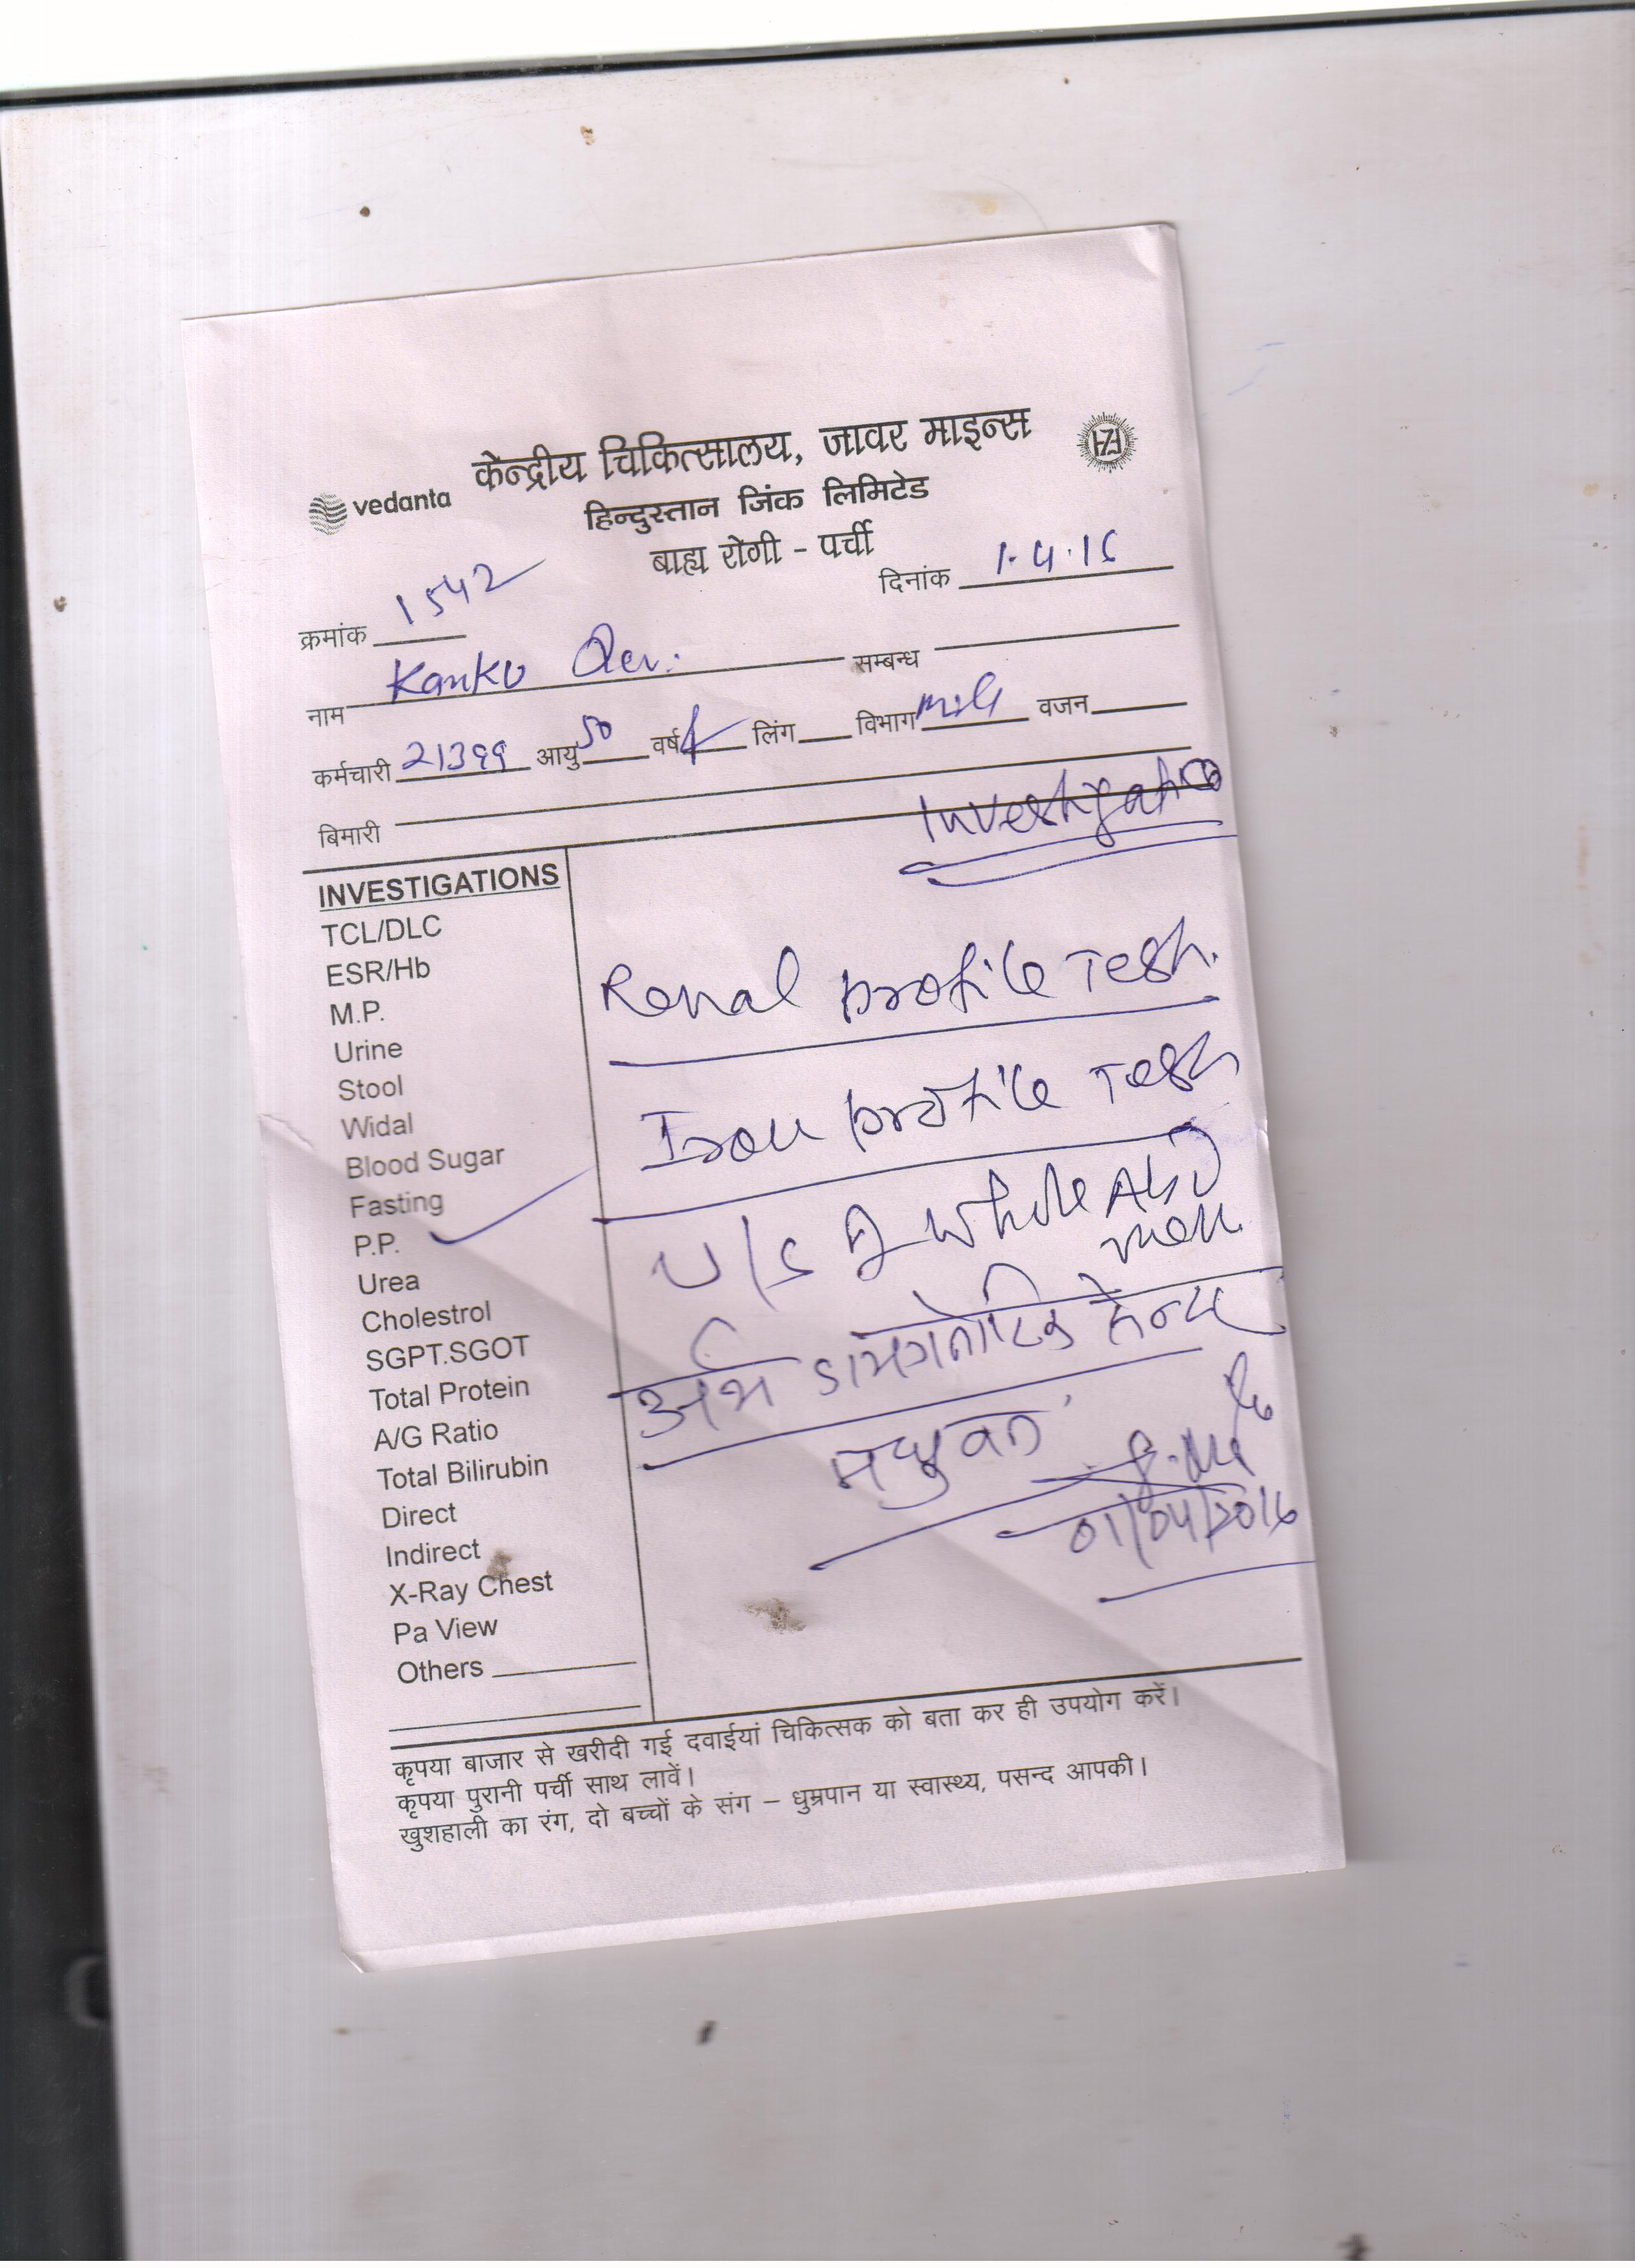 केन्द्रीय चिकित्सालय, जावर माइन्स
vedanta
हिन्दुस्तान जिंक लिमिटेड
बाह्य रोगी - पर्ची
क्रमांक 1542
दिनांक 1.4.16
नाम Kanku Devi सम्बन्ध
कर्मचारी 21399 आयु 50 वर्ष लिंग विभाग वजन
बिमारी
Investigation
INVESTIGATIONS
TCL/DLC
ESR/Hb
M.P.
Urine
Stool
Widal
Blood Sugar
Fasting
P.P.
Urea
Cholestrol
SGPT.SGOT
Total Protein
A/G Ratio
Total Bilirubin
Direct
Indirect
X-Ray Chest
Pa View
Others
Renal profile Test.
Iron profile Test
U/S of whole Abdo
men
अर्थ डायग्नोटिक सेन्टर
मधुवन
01/04/2016
कृपया बाजार से खरीदी गई दवाईयां चिकित्सक को बता कर ही उपयोग करें।
कृपया पुरानी पर्ची साथ लावें।
खुशहाली का रंग, दो बच्चों के संग – धुम्रपान या स्वास्थ्य, पसन्द आपकी।